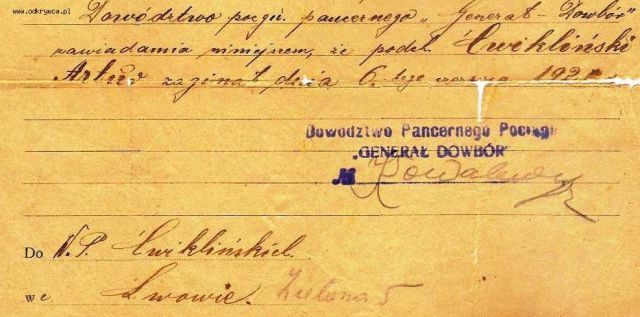 www.odkrywca.pl
Dowództwo pociąg. pancernego „Generał-Dowbór”
zawiadamia niniejszem, że podch. Ćwikliński
Artur zaginął dnia 6. tego czerwca 192
Dowodztwo Pancernego Pociągu
„GENERAŁ DOWBÓR”
№
Do W.P. Ćwiklińskiel.
we Lwowie. Zielona 5